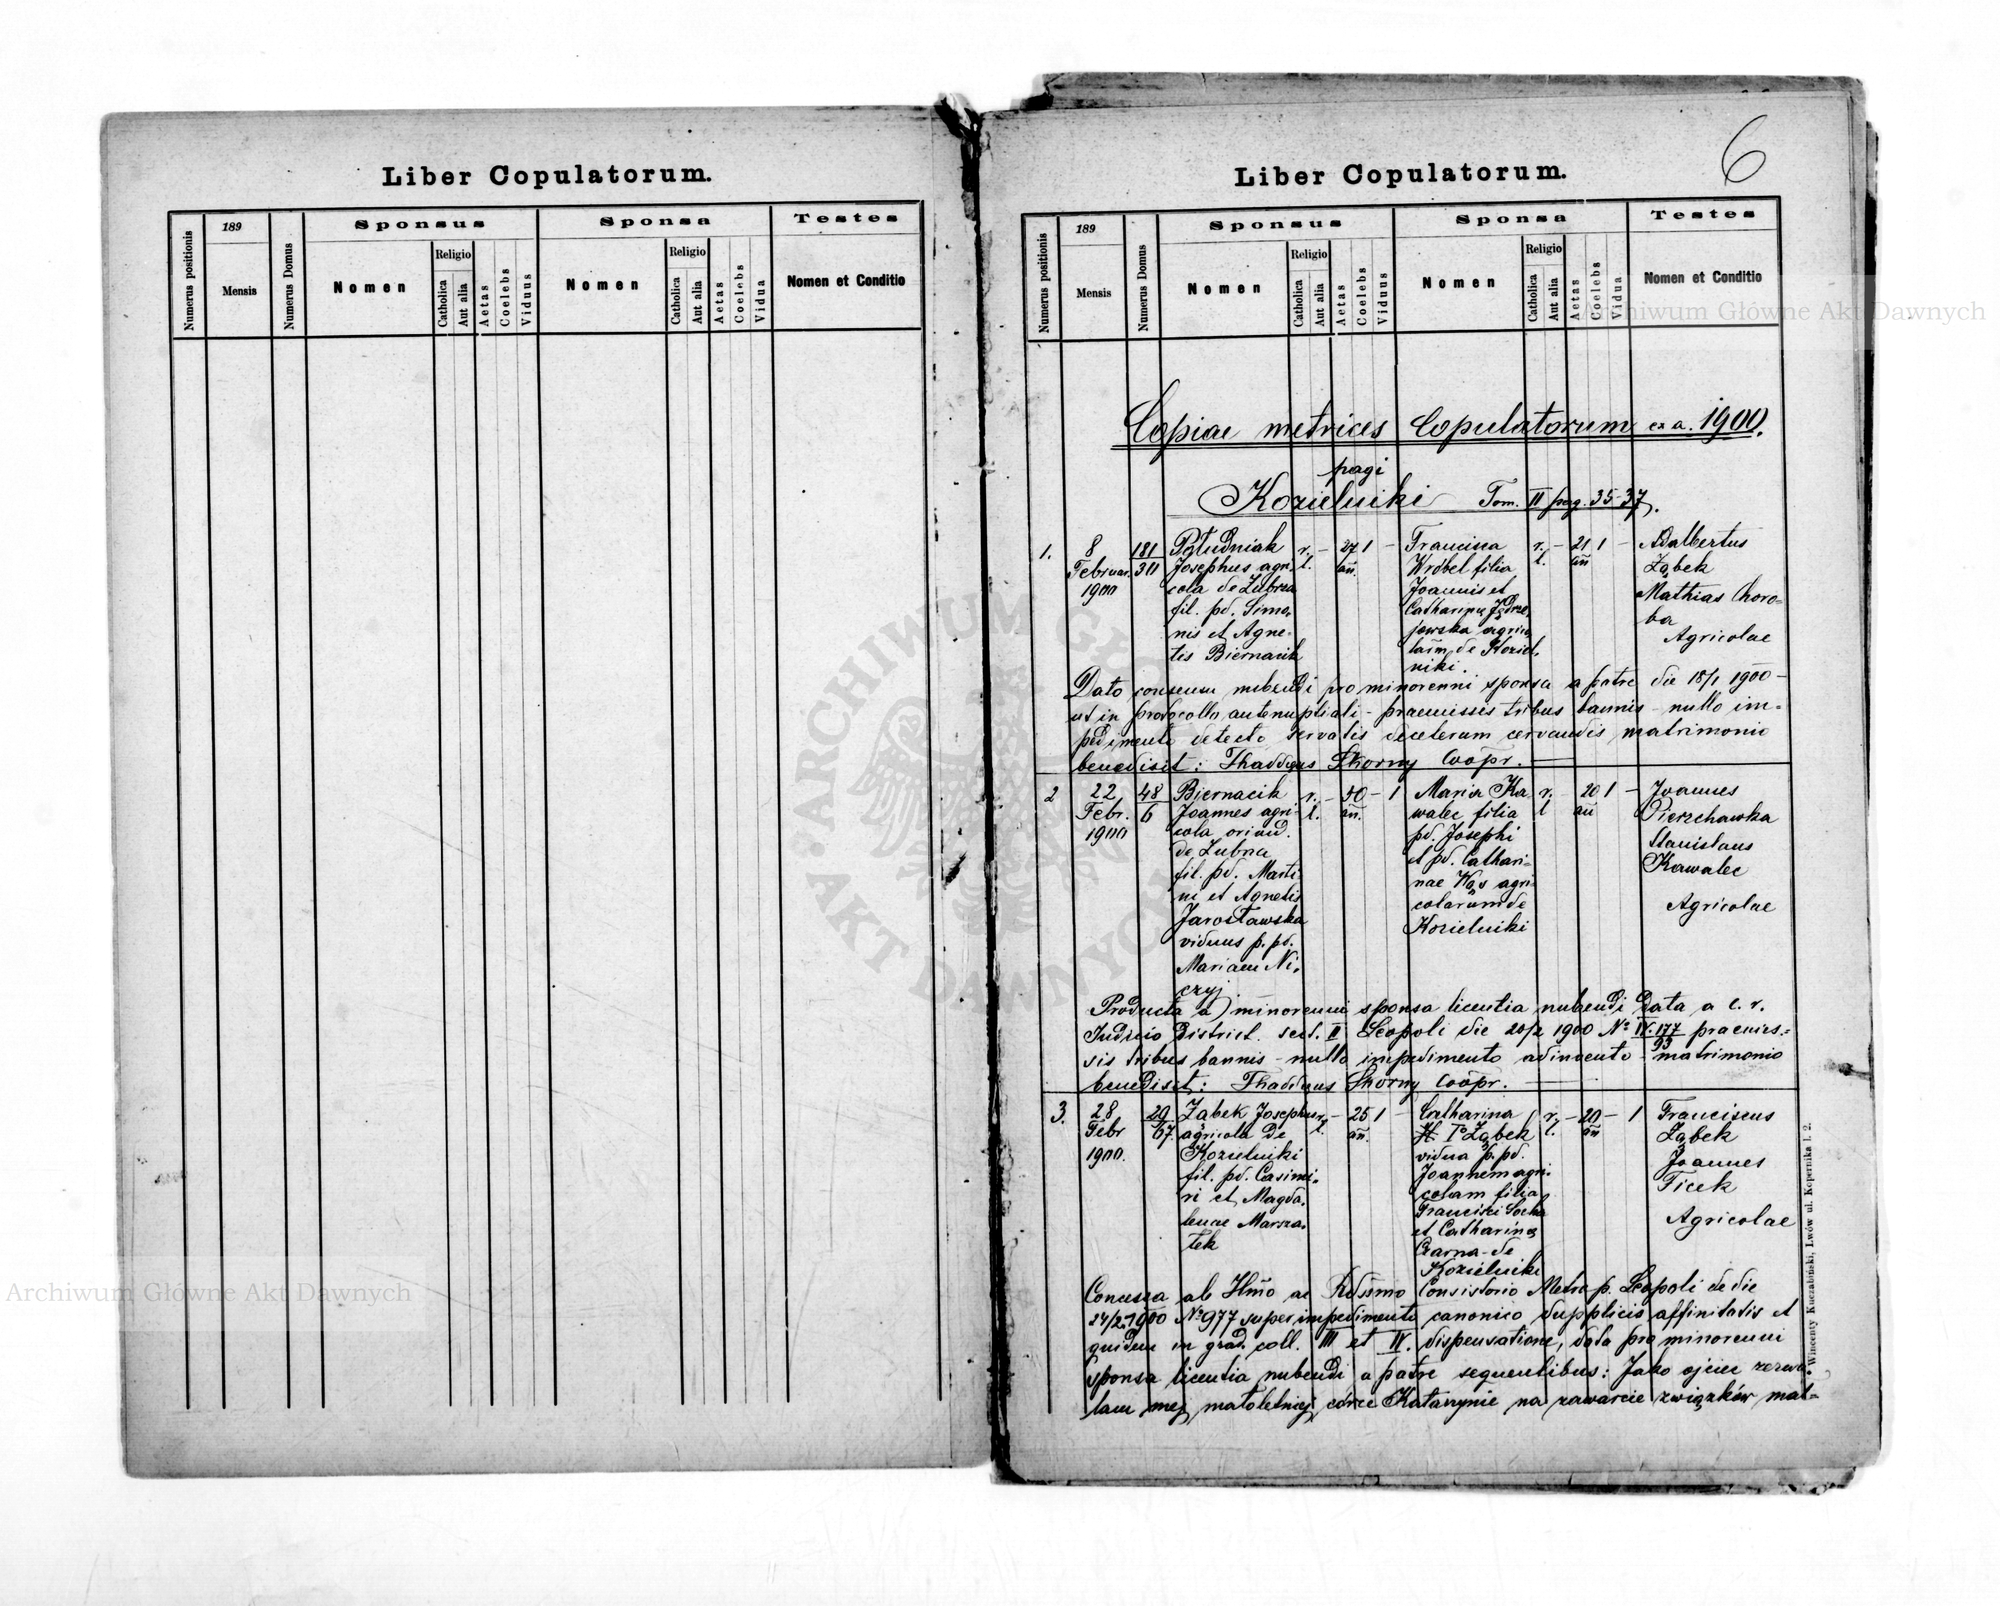 Liber Copulatorum.
Numerus positionis
189
Mensis
Numerus Domus
Sponsus
Nomen
Religio
Catholica
Aut alia
Aetas
Coelebs
Viduus
Sponsa
Nomen
Religio
Catholica
Aut alia
Aetas
Coelebs
Vidua
Testes
Nomen et Conditio
6
Liber Copulatorum.
Numerus positionis
189
Mensis
Numerus Domus
Sponsus
Nomen
Religio
Catholica
Aut alia
Aetas
Coelebs
Viduus
Sponsa
Nomen
Religio
Catholica
Aut alia
Aetas
Coelebs
Vidua
Testes
Nomen et Conditio
Copiae metrices Copulatorum ex a. 1900.
pagi
Kozielniki Tom. II pag. 35-37.
1.
8
Februar.
1900
181
311
Południak
Josephus agri-
cola de Zubrza
fil. pd. Simo-
nis et Agne-
tis Biernacik
r.
l.
–
27
an.
1
–
Francisca
Wróbel filia
Joannis et
Catharinę Jędrze-
jowska agrico-
larum de Koziel-
niki.
r.
l.
–
21
an
1
–
Adalbertus
Ząbek
Mathias Choro-
ba
Agricolae
Dato consensu nubendi pro minorenni sponsa a patre die 18/1 1900 –
ut in protocollo antenuptiali – praemissis tribus bannis – nullo im-
pedimento detecto, servatis deceterum servandis matrimonio
benedixit: Thaddaeus Skorny Coopr.
2
22
Febr.
1900
48
6
Biernacik
Joannes agri-
cola oriund.
de Zubrza
fil. pd. Marti-
ni et Agnetis
Jarosławska
viduus p. pd.
Mariam Ni-
czyj
r.
l.
–
40
an.
–
1
Maria Ka-
walec filia
pd. Josephi
et pd. Cathari-
nae Wąs agri-
colarum de
Kozielniki
r.
l
–
20
an
1
–
Joannes
Pierzchawka
Stanislaus
Kawalec
Agricolae
Producta a minorenni sponsa licentia nubendi data a c. r.
Judicio District. sect. II Leopoli die 20/2 1900 No IV. 177/93 praemis-
sis tribus bannis – nullo impedimento adinvento – matrimonio
benedixit: Thaddaeus Skorny Coopr.
3.
28
Febr
1900.
29
67.
Ząbek Josephus
agricola de
Kozielniki
fil. pd. Casimi-
ri et Magda-
lenae Marsza-
łek
r.
l.
–
25
an.
1
–
Catharina
Ząbek
vidua p. pd.
Joannem agri-
colam filia
Francisci Socha
et Catharinę
Czarna – de
Kozielniki
r.
l.
–
20
an
–
1
Franciscus
Ząbek
Joannes
Ficek
Agricolae
Concessa ab Illmo ac Rdssmo Consistorio Metrop. Leopoli de die
24/2 1900 No 977 super impedimento canonico dupplicis affinitatis et
quidem in grad. coll. III et IV. dispensatione, data pro minorenni
sponsa licentia nubendi a patre sequentibus: Jako ojciec zezwa-
lam mej małoletniej córce Katarzynie na zawarcie związków mał-
Wincenty Kuczabiński, Lwów ul. Kopernika l. 2.
Archiwum Główne Akt Dawnych
Archiwum Główne Akt Dawnych
ARCHIWUM GŁÓWNE AKT DAWNYCH